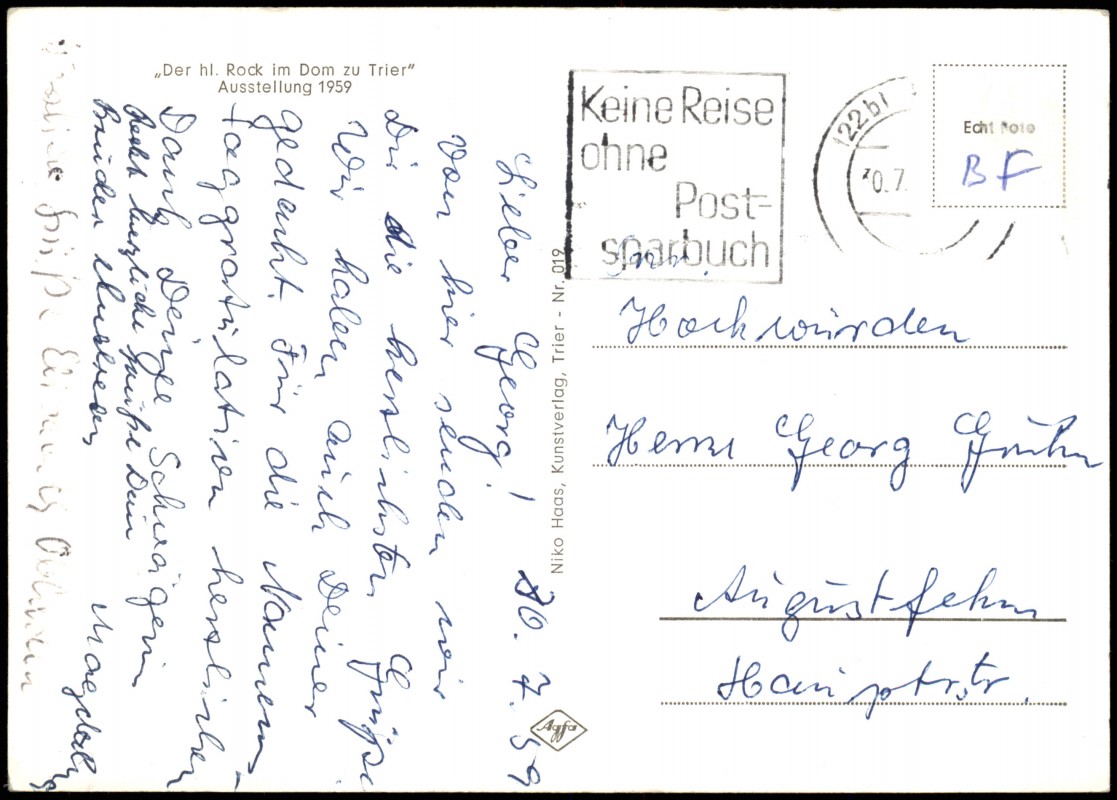 „Der hl. Rock im Dom zu Trier"
Ausstellung 1959
Keine Reise
ohne
Post-
sparbuch
22b
0.7.
Echt Foto
BF
Niko Haas, Kunstverlag, Trier - Nr. 019
Agfa
Hochwürden
Herrn Georg
Augustfehn
Hauptstr.
7. 59
Lieber Georg!
Von hier senden wir
Dir die herzlichsten Grüße
Wir haben auch Deiner
gedacht. Für die Namens-
taggratulation herzlichen
Dank Deine Schwägerin
Recht herzliche Grüße Dein
Bruder